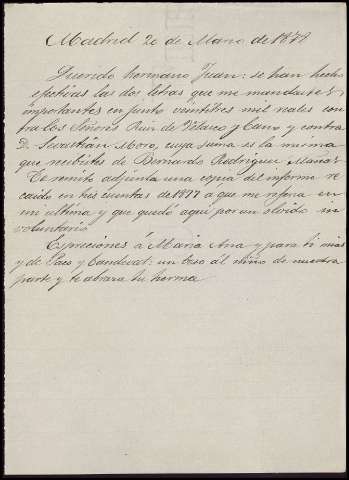 Madrid 20 de Marzo de 1879
Querido hermano Juan: se han hecho
efectivas las dos letras que me mandastes
importantes en junto veintitres mil reales
contra los Señores Ruiz de Velasco y Cano y contra
D. Sebastián Moro, cuya suma es la misma
que recibistes de Bernardo Rodriguez Mariaz
Te remito adjunta una copia del informe re
caido en tus cuentas de 1877 á que me refería en
mi última y que quedó aquí por un olvido in
voluntario
Espresiones á Maria Ana y para ti mias
y de Paco y Candevat: un beso al niño de nuestra
parte y te abraza tu herma